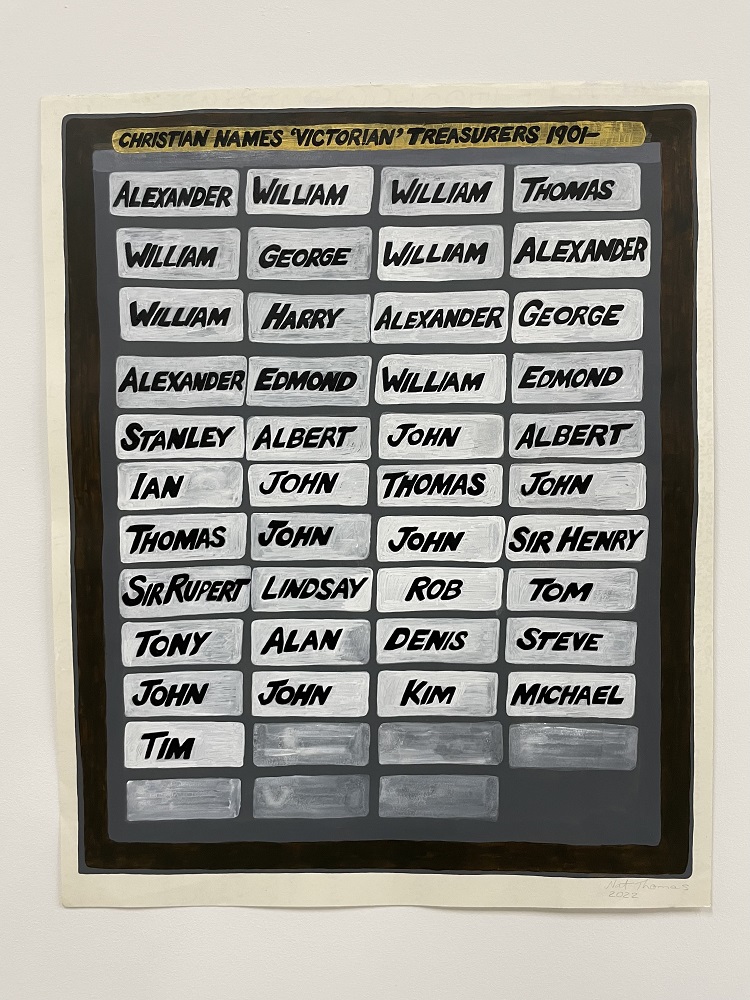 CHRISTIAN NAMES 'VICTORIAN' TREASURERS 1901-
ALEXANDER WILLIAM WILLIAM THOMAS
WILLIAM GEORGE WILLIAM ALEXANDER
WILLIAM HARRY ALEXANDER GEORGE
ALEXANDER EDMOND WILLIAM EDMOND
STANLEY ALBERT JOHN ALBERT
IAN JOHN THOMAS JOHN
THOMAS JOHN JOHN SIR HENRY
SIR RUPERT LINDSAY ROB TOM
TONY ALAN DENIS STEVE
JOHN JOHN KIM MICHAEL
TIM
Nat Thomas
2022